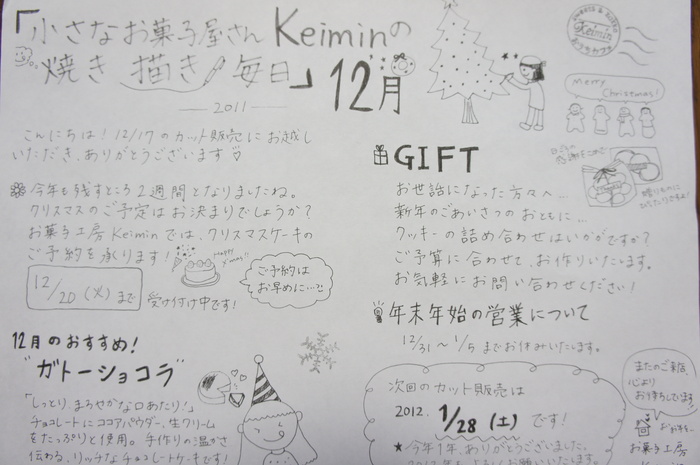 「小さなお菓子屋さん Keiminの
焼き 描き 毎日」 12月
2011
こんにちは！12/17のカット販売にお越し
いただき、ありがとうございます♡
今年も残すところ2週間となりましたね。
クリスマスのご予定はお決まりでしょうか？
お菓子工房Keiminでは、クリスマスケーキの
ご予約を承ります！
Happy X'mas!!
12/20（火）まで
受け付け中です！
ご予約は
お早めに…
12月のおすすめ！
"ガトーショコラ"
「しっとり まろやかな口あたり！」
チョコレートにココアパウダー、生クリーム
をたっぷりと使用。手作りの温かさ
伝わる、リッチなチョコレートケーキです！
Keimin
Merry
Christmas!
GIFT
お世話になった方々へ…
新年のごあいさつのおともに…
クッキーの詰め合わせはいかがですか？
ご予算に合わせて、お作りいたします。
お気軽にお問い合わせください！
年末年始の営業について
12/31〜1/5までお休みいたします。
次回のカット販売は
2012. 1/28（土）です！
★今年1年、ありがとうございました。
またのご来店、
心より
お待ちしています
お菓子工房